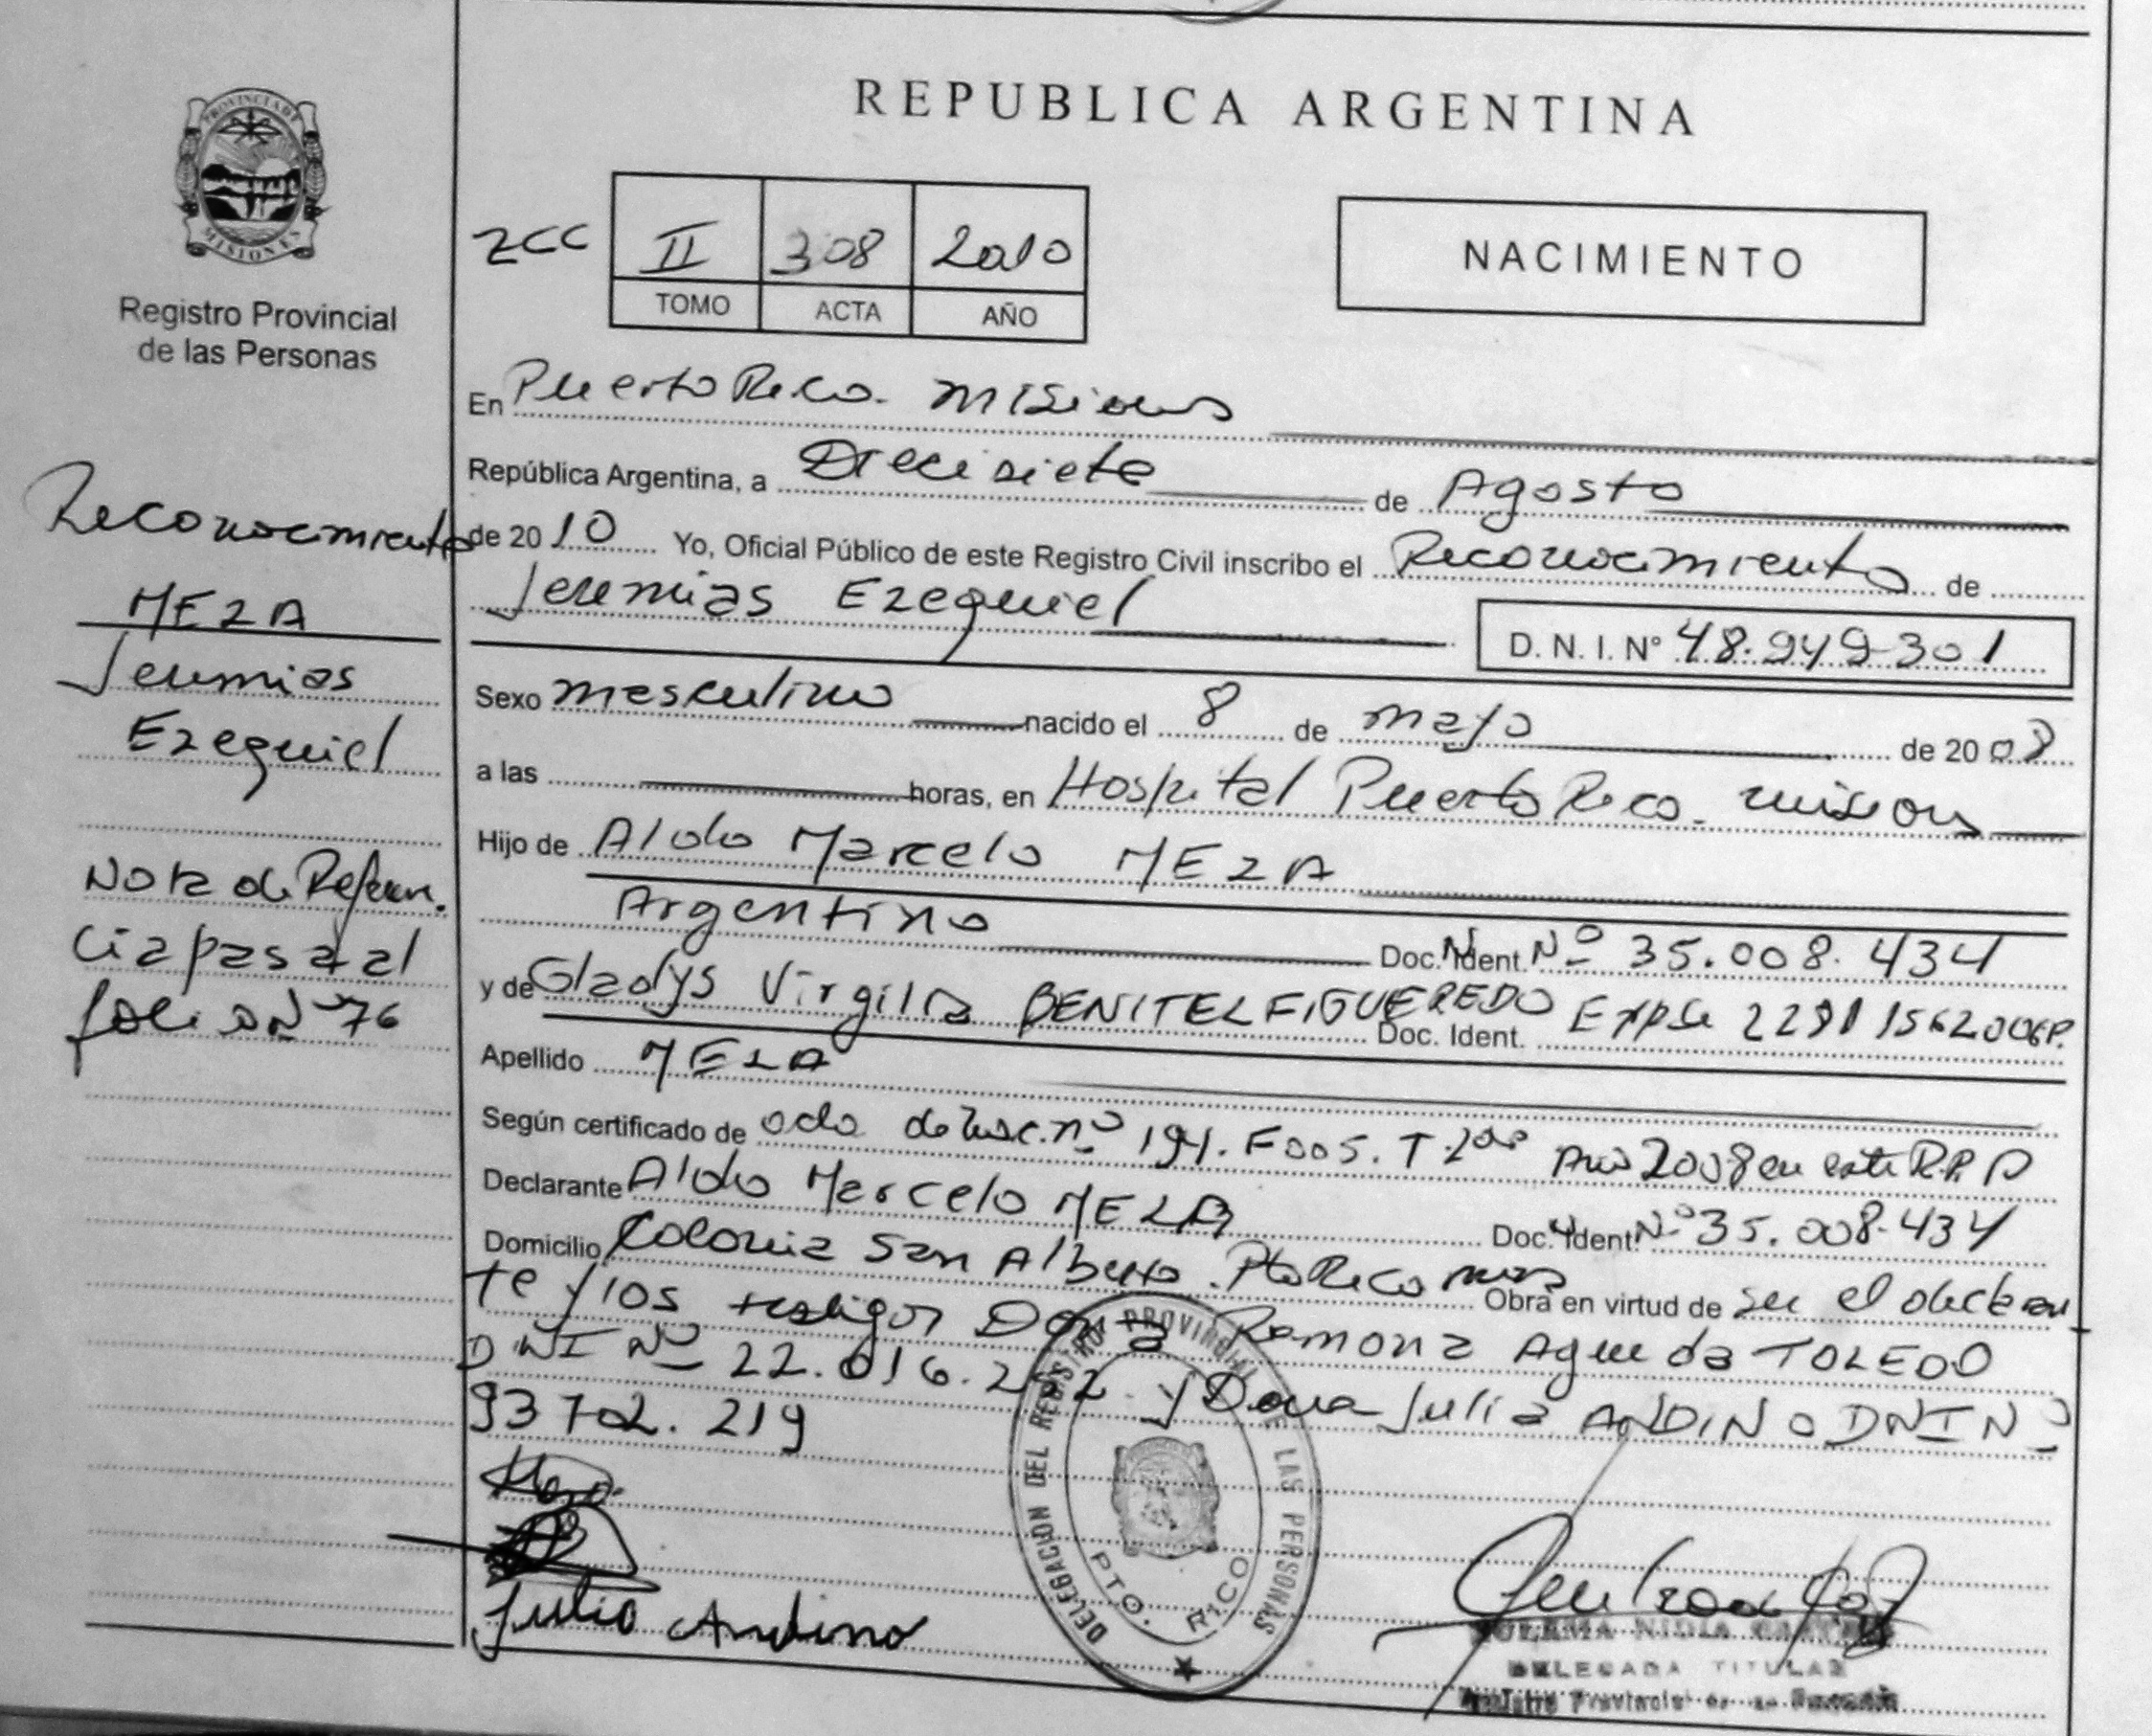 REPUBLICA ARGENTINA
PROVINCIA DE MISIONES
Registro Provincial
de las Personas
2CC II 308 2010
TOMO ACTA AÑO
NACIMIENTO
En Puerto Rico. Misiones
República Argentina, a Diecisiete de Agosto
de 2010 Yo, Oficial Público de este Registro Civil inscribo el Reconocimiento de
Jeremias Ezequiel D. N. I. N° 48.949.301
Sexo masculino nacido el 8 de mayo de 2008
a las horas, en Hospital Puerto Rico. Misiones
Hijo de Aldo Marcelo MEZA
Argentino Doc. Ident. Nº 35.008.434
y de Gladys Virgilia BENITEZ FIGUEREDO Doc. Ident. Expte
Apellido MEZA
Según certificado de acta de Insc. nº 191. F005. T-2do Año 2008 en este R.P.P
Declarante Aldo Marcelo MEZA Doc. Ident. Nº 35.008.434
Domicilio Colonia San Alberto. Pto Rico Obra en virtud de ser el declaran
te y los testigos Doña Ramona Agueda TOLEDO
DNI Nº 22.016.2 2 y Doña Julia ANDINO DNI Nº
93702.219
Julia Andino
Reconocimiento
MEZA
Jeremias
Ezequiel
Nota de Referen.
cia pasa al
folio Nº 76
DELEGACION DEL REGISTRO PROVINCIAL DE LAS PERSONAS
PTO. RICO
NIDIA
DELEGADA TITULAR
Registro Provincial de las Personas